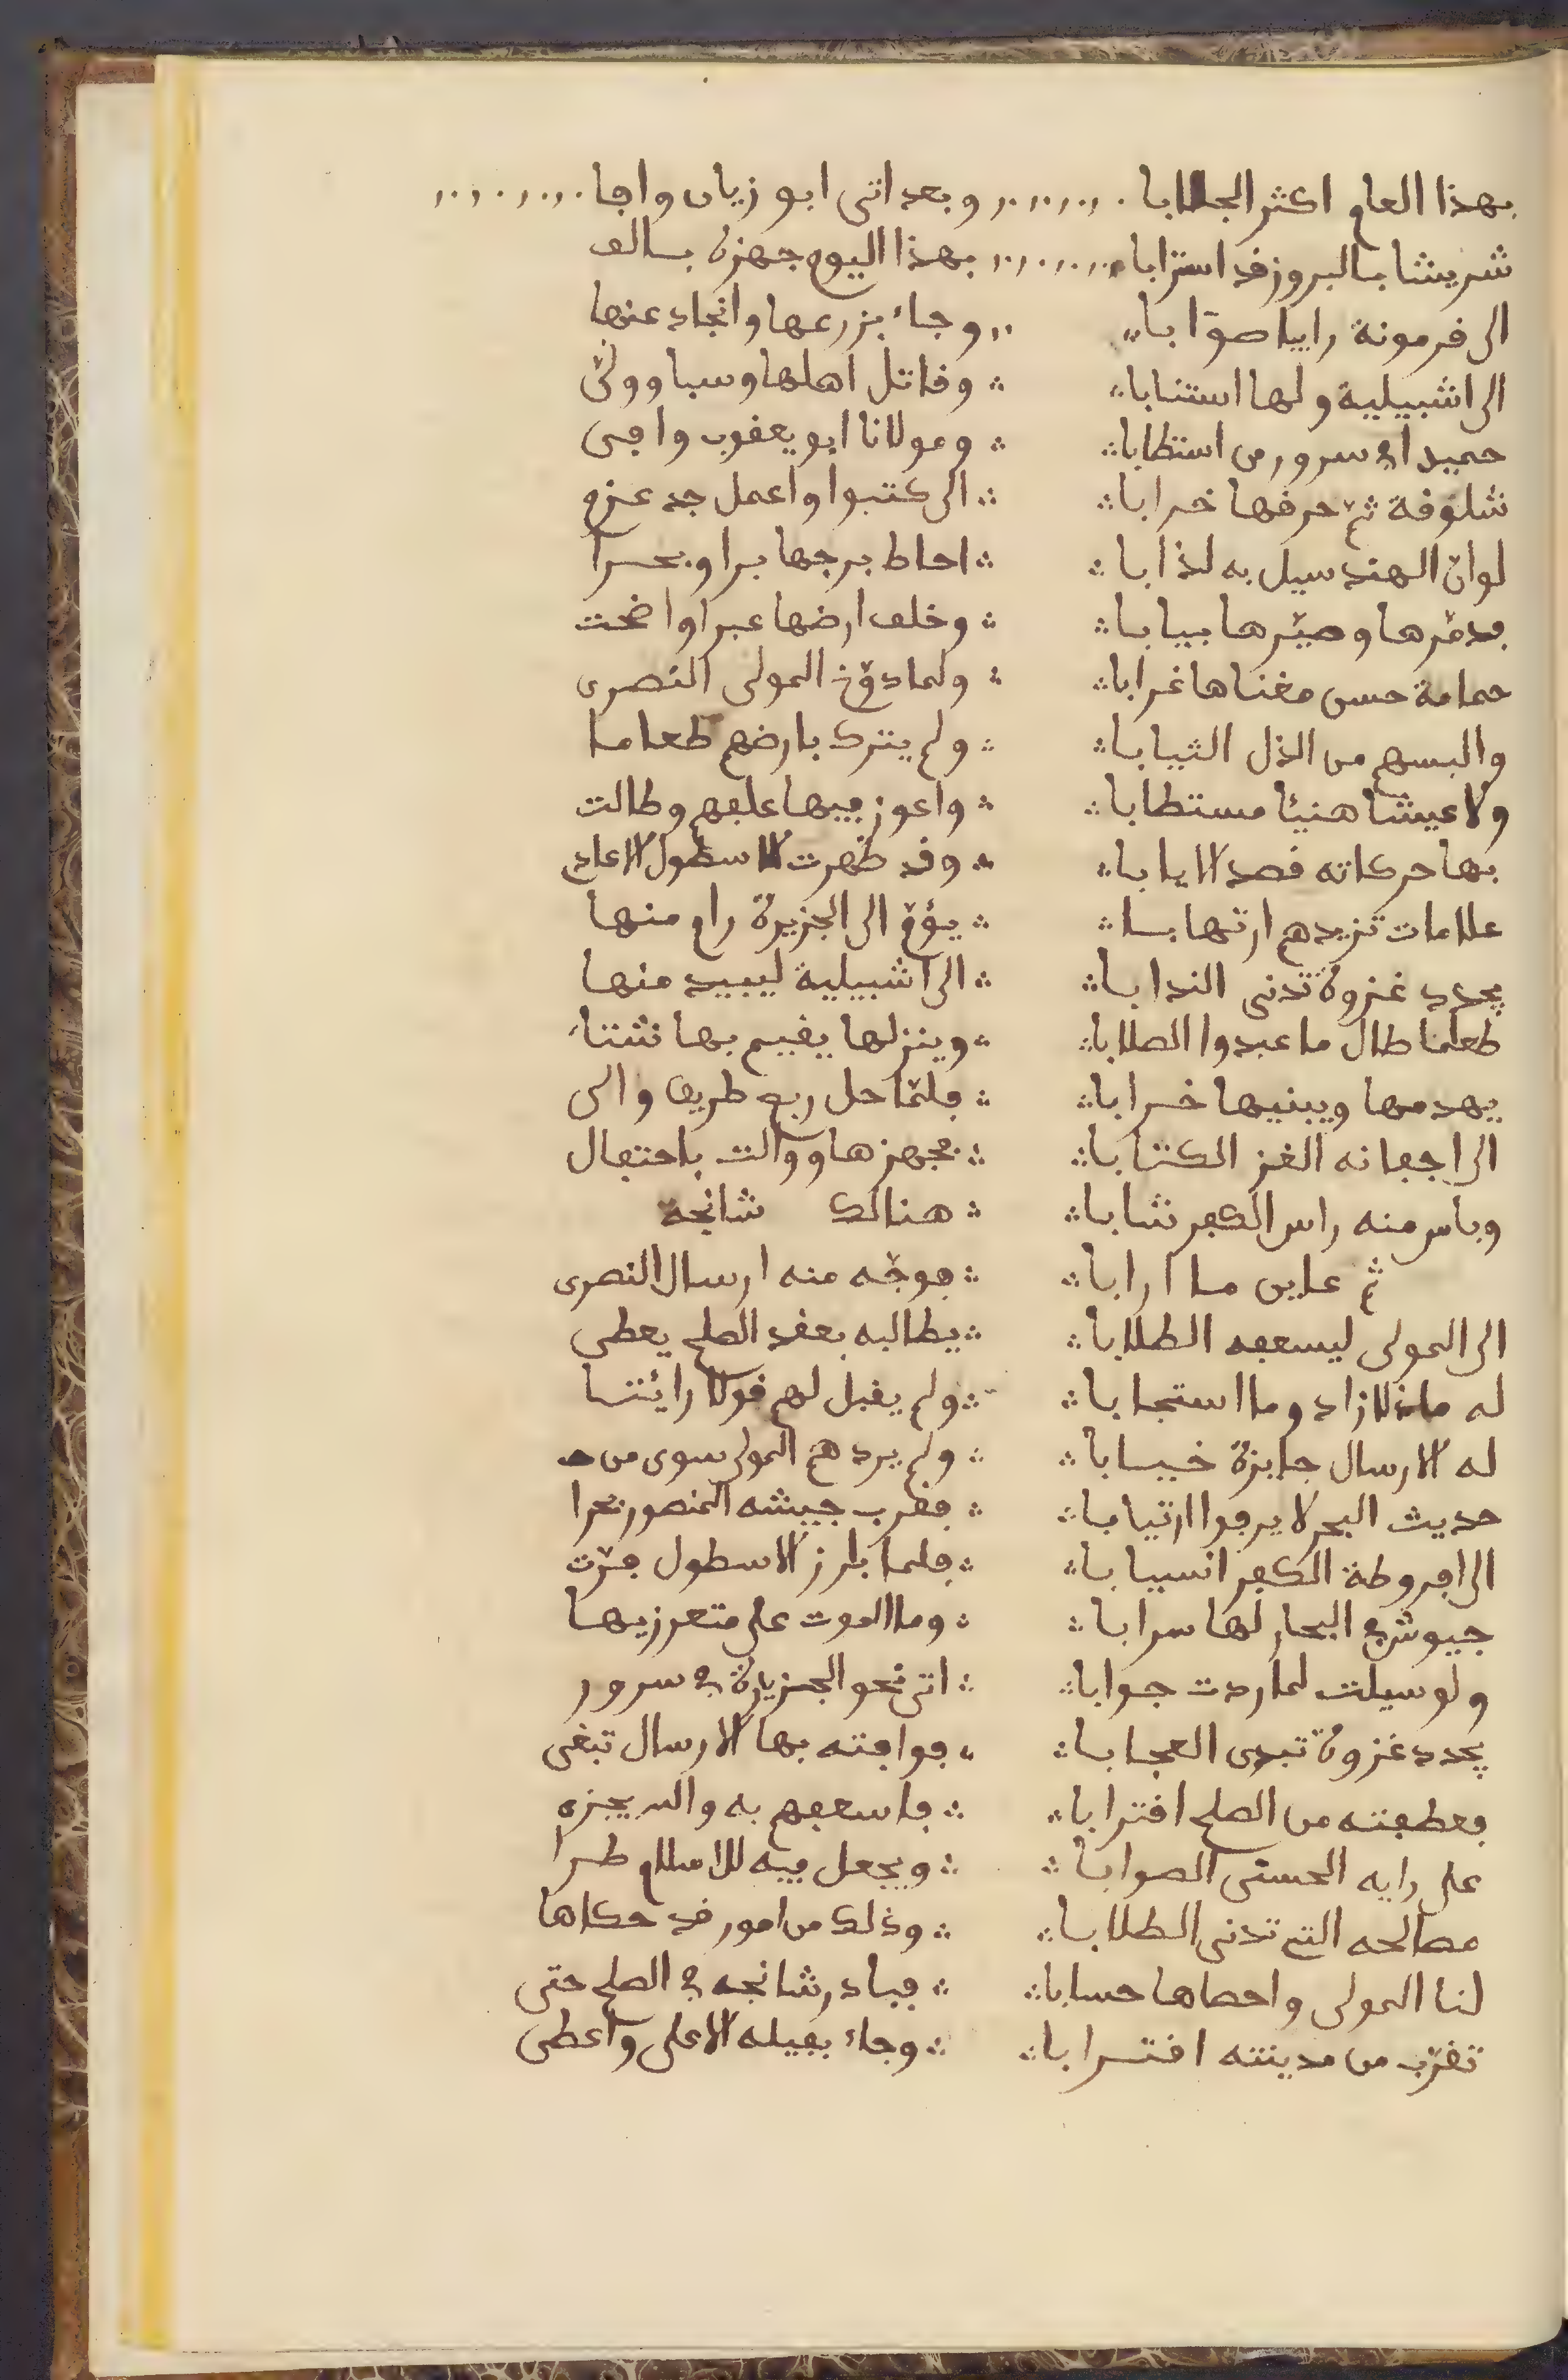 بهذا العام اكثر الجلابا وبعد اتى ابو زيان وافا
شريشا بالبروز قد استرابا بهذا اليوم جهزه بالف
الى قرمونة رايا صوابا وجاء بزرعها وانجاد عنها
الى اشبيلية ولها استنابا وقاتل اهلها وسبا وولى
حميدا في سرور من استطابا ومولانا ابو يعقوب وافى
شلوقة ثم حرقها خرابا الى كتبوا واعمل جد عزم
لو ان الهند سيل به لذابا احاط ببرجها برا وبحرا
فدمرها وصيرها يبابا وخلف ارضها عبرا واضحت
حمامة حسن مغناها غرابا ولما دوخ المولى النصرى
والبسهم من الذل الثيابا ولم يترك بارضهم طعاما
ولا عيشا هنيئا مستطابا واعوز فيها علفهم وطالت
بها حركاته قصد الايابا وقد ظهرت لاسطول الاعادى
علامات تزيدهم ارتهابا يؤم الى الجزيرة رام منها
يجدد غزوة تدنى الندابا الى اشبيلية ليبيد منها
طعاما طال ما عبدوا الصلابا وينزلها يقيم بها شتاء
يهدمها ويبنيها خرابا فلما حل ربع طريف والى
الى اجفانه الغز الكتابا فجهزها ووالت باحتفال
وباس منه راس الكفر شابا هنالك شانجة
ثم عاين ما ارابا فوجه منه ارسال النصرى
الى المولى ليسعفه الطلابا يطالبه بعقد الصلح يعطى
له مازاد وما استجابا ولم يقبل لهم قولا رائتا
له الارسال جايزة خيابا ولم يردهم المولى سوى من
حديث البحر لا يرفوا ارتيابا فقرب جيشه المنصور بحرا
الى افروطة الكفر انسيابا فلما بارز الاسطول فرت
جيوش في البحار لها سرابا وما الموت على متعرزيها
ولو سيلت لما ردت جوابا اتى نحو الجزيرة في سرور
يجدد غزوة تبدى العجابا فوافته بها الارسال تبغى
فعطفته من الصلح اقترابا فاسعفهم به والله يجزه
على رايه الحسنى الصوابا ويجعل فيه للاسلام طرا
مصالحه التى تدنى الطلابا وذلك من امور قد حكاها
لنا المولى واحصاها حسابا فبادر شانجه في الصلح حتى
تقرب من مدينته اقترابا وجاء بفيله الاعلى واعطى